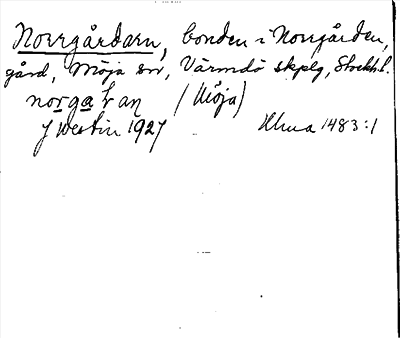 Norrgårdarn, bonden i Norrgården,
gård, Möja sn, Värmdö skplg, Stockh.l.
norgaɫan (Möja)
J Westin 1927 Ulma 1483:1